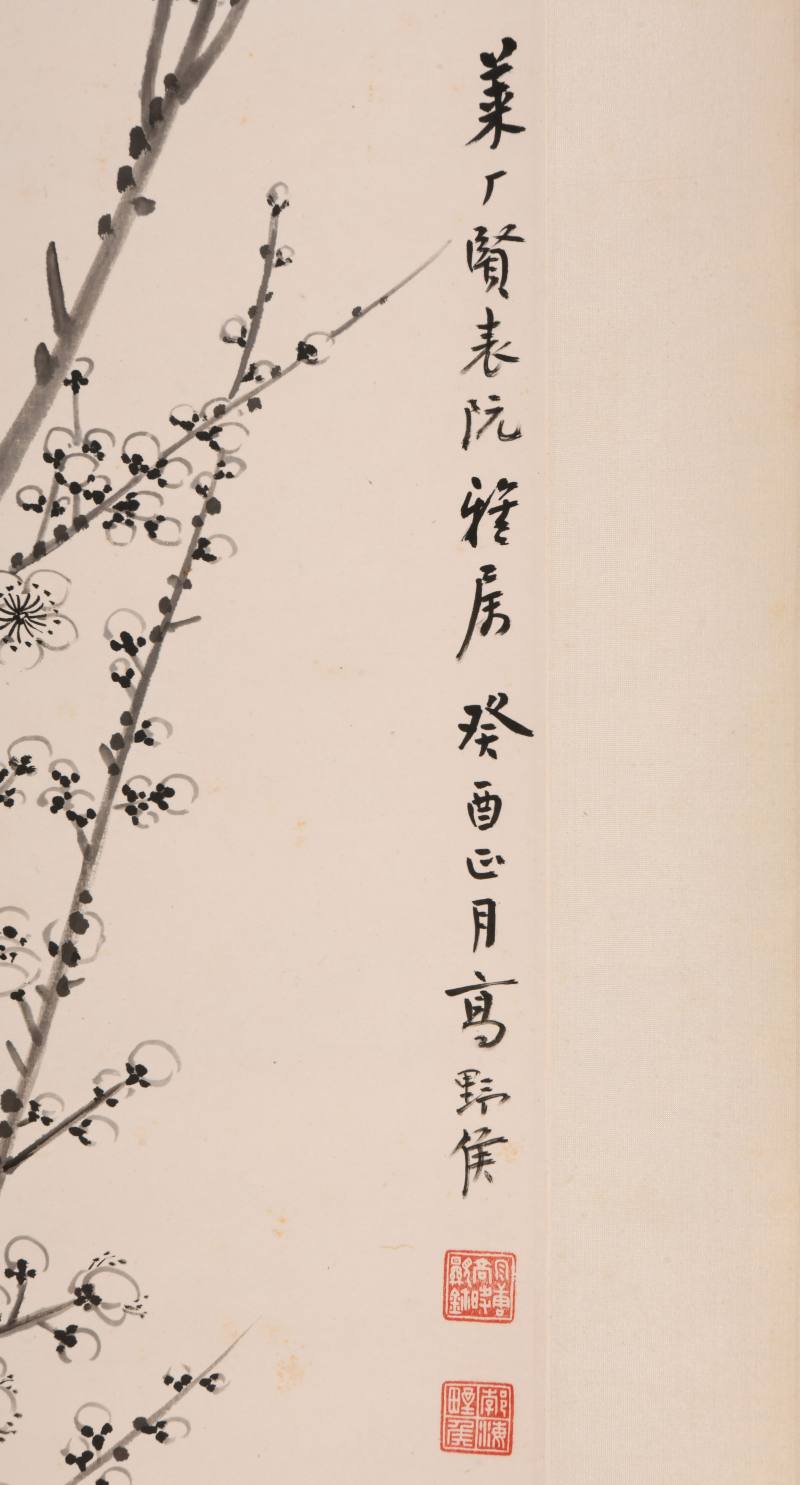 菜厂賢表阮雅属癸酉正月高野侯